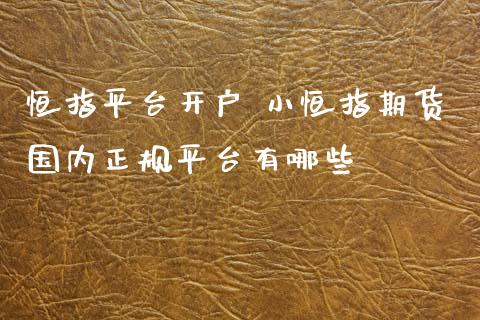 恒指平台开户 小恒指期货
国内正规平台有哪些